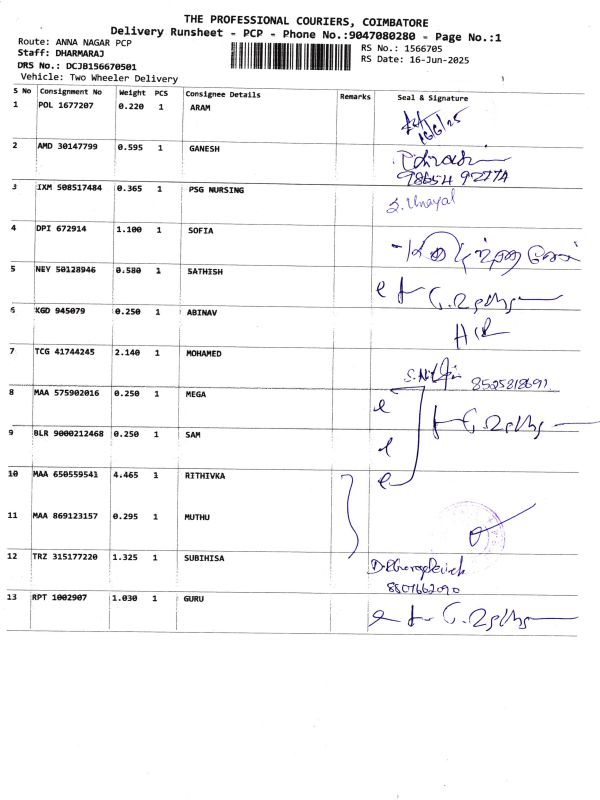 THE PROFESSIONAL COURIERS, COIMBATORE
Delivery Runsheet - PCP - Phone No.:9047080280 - Page No.:1
Route: ANNA NAGAR PCP
RS No.: 1566705
Staff: DHARMARAJ
RS Date: 16-Jun-2025
DRS No.: DCJB156670501
Vehicle: Two Wheeler Delivery
S No Consignment No Weight PCS Consignee Details Remarks Seal & Signature
1 POL 1677207 0.220 1 ARAM
16/6/25
2 AMD 30147799 0.595 1 GANESH
3 IXM 508517484 0.365 1 PSG NURSING
4 DPI 672914 1.100 1 SOFIA
5 NEY 50128946 0.580 1 SATHISH
6 KGD 945079 0.250 1 ABINAV
7 TCG 41744245 2.140 1 MOHAMED
8 MAA 575902016 0.250 1 MEGA
9 BLR 9000212468 0.250 1 SAM
10 MAA 650559541 4.465 1 RITHIVKA
11 MAA 869123157 0.295 1 MUTHU
12 TRZ 315177220 1.325 1 SUBIHISA
8807662090
13 RPT 1002907 1.030 1 GURU